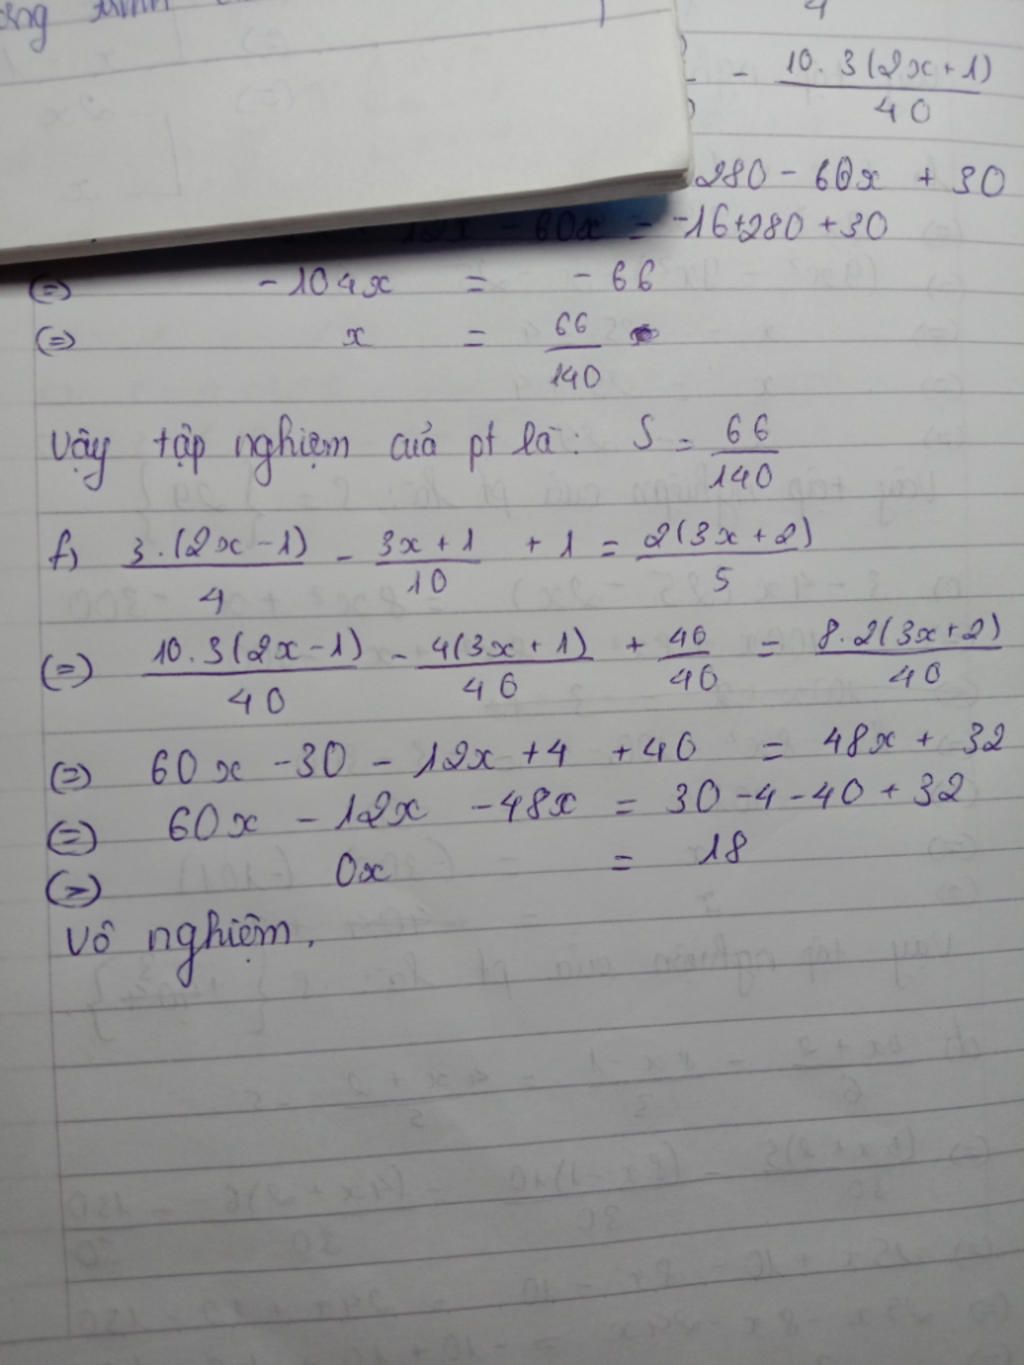 4
- 10.3(2x+1)/40
280 - 60x + 30
12x - 60x = -16+280+30
(=) -104x = -66
(=) x = 66/140
Vậy tập nghiệm của pt là: S = 66/140
f) 3.(2x-1)/4 - 3x+1/10 + 1 = 2(3x+2)/5
(=) 10.3(2x-1)/40 - 4(3x+1)/40 + 40/40 = 8.2(3x+2)/40
(=) 60x - 30 - 12x + 4 + 40 = 48x + 32
(=) 60x - 12x - 48x = 30 - 4 - 40 + 32
(=) 0x = 18
Vô nghiệm.